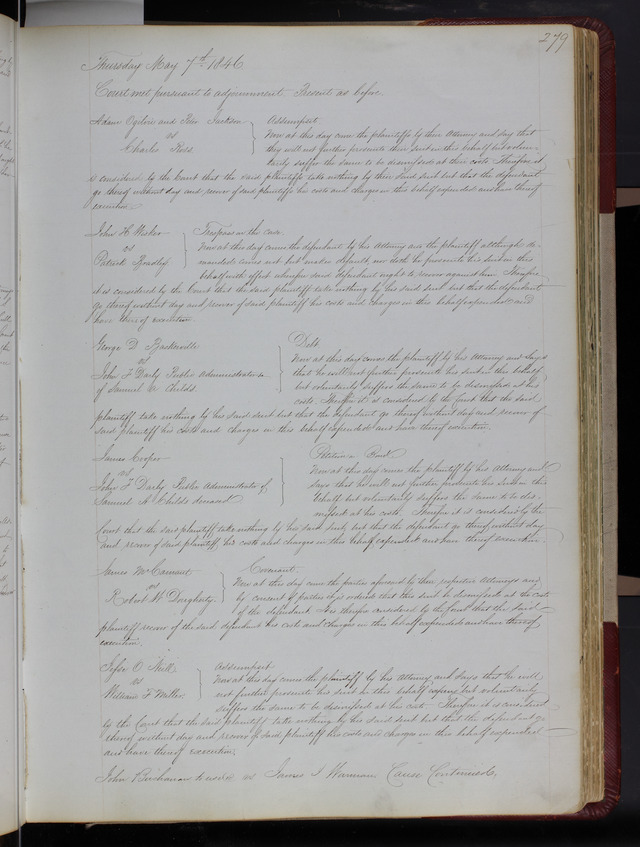 279
Thursday May 7th 1846
Court met pursuant to adjournment. Present as before.
Adam Ogilvie and Peter Jackson } Assumpsit
vs Now at this day come the plaintiffs by their Attorney and say that
Charles Ross they will not further prosecute their suit in this behalf but volun-
tarily suffer the same to be dismissed at their costs Therefore it
is considered by the Court that the said plaintiffs take nothing by their said suit but that the defendant
go thereof without day and recover of said plaintiffs his costs and charges in this behalf expended and have thereof
execution.
John H Wisker } Trespass on the case.
vs Now at this day comes the defendant by his Attorney and the plaintiff although de-
Patrick manded comes not but makes default, nor doth he prosecute his suit in this
behalf with effect wherefore said defendant ought to recover against him Therefore
it is considered by the Court that the said plaintiff take nothing by his said suit but that the defendant
go thereof without day and recover of said plaintiff his costs and charges in this behalf expended and
have thereof execution.
George D } Debt
vs Now at this day comes the plaintiff by his Attorney and says
John F Darby Public Administrator that he will not further prosecute his suit in this behalf
of Samuel A Childs but voluntarily suffers the same to be dismissed at his
costs Therefore it is considered by the Court that the said
plaintiff take nothing by his said suit but that the defendant go thereof without day and recover of
said plaintiff his costs and charges in this behalf expended and have thereof execution.
James Cooper } Petition in Debt
vs Now at this day comes the plaintiff by his Attorney and
John F Darby Public Administrator of says that he will not further prosecute his suit in this
Samuel A Childs deceased behalf but voluntarily suffers the same to be dis-
missed at his costs. Therefore it is considered by the
Court that the said plaintiff take nothing by his said suit, but that the defendant go thereof without day
and recover of said plaintiff his costs and charges in this behalf expended and have thereof execution
James McCament } Covenant.
vs Now at this day come the parties aforesaid by their respective Attorneys and
Robert W Dougherty by consent of parties it is ordered that this suit be dismissed at the costs
of the defendant. It is therefore considered by the Court that the said
plaintiff recover of the said defendant his costs and charges in this behalf expended and have thereof
execution.
Jesse O Neill } Assumpsit
vs Now at this day comes the plaintiff by his Attorney and says that he will
William F Miller not further prosecute his suit in this behalf but voluntarily
suffers the same to be dismissed at his cost Therefore it is considered
by the Court that the said plaintiff take nothing by his said suit but that the defendant go
thereof without day and recover of said plaintiff his costs and charges in this behalf expended
and have thereof execution.
John Buchanan to use &c vs James S Cause Continued.